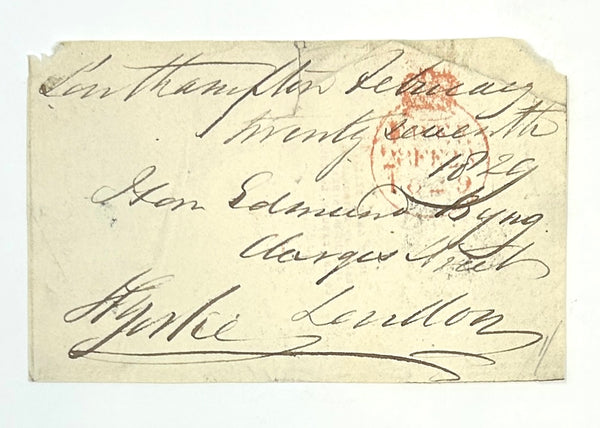 Southampton February
twenty seventh
1829
Hon Edmund Byng
Clarges Street
London